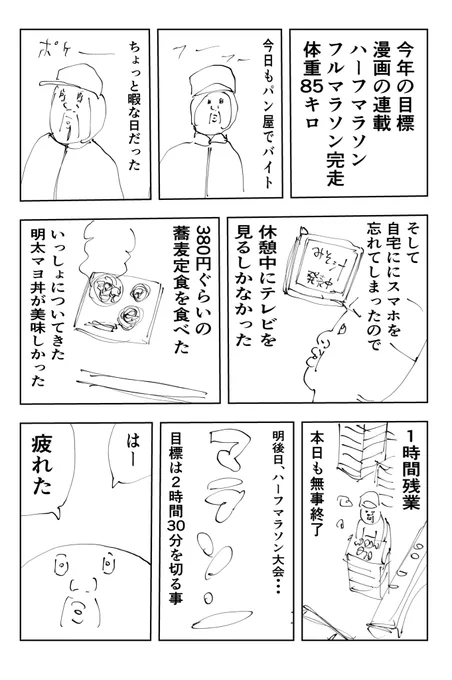 今年の目標
漫画の連載
ハーフマラソン
フルマラソン完走
体重85キロ
今日もパン屋でバイト
フーーー
ちょっと暇な日だった
ポケー
そして
自宅ににスマホを
忘れてしまったので
発売中
休憩中にテレビを
見るしかなかった
380円ぐらいの
蕎麦定食を食べた
いっしょについてきた
明太マヨ丼が美味しかった
1時間残業
本日も無事終了
明後日、ハーフマラソン大会・・・
マラソン
目標は2時間
30分を切る事
はー
疲れた